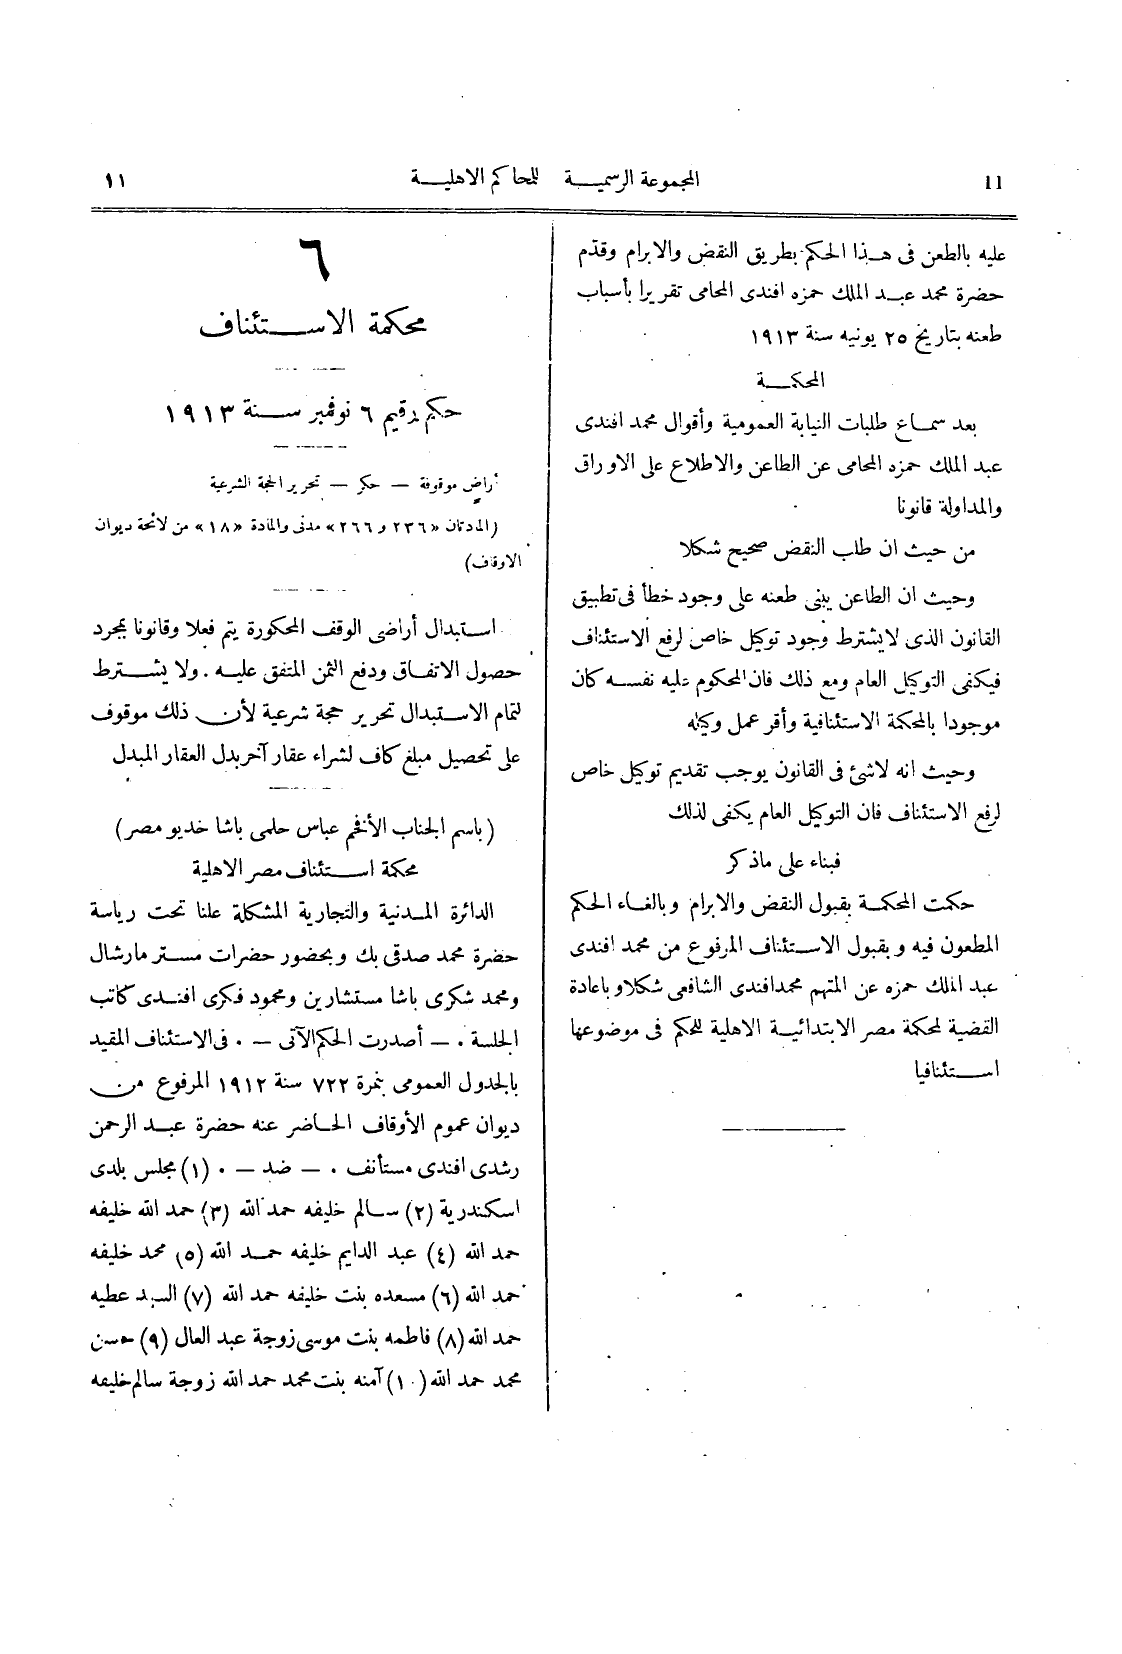 11 المجموعة الرسمية للمحاكم الاهلية ١١
عليه بالطعن فى هذا الحكم بطريق النقض والابرام وقدّم
حضرة محمد عبد الملك حمزه افندى المحامى تقريرا بأسباب
طعنه بتاريخ ٢٥ يونيه سنة ١٩١٣
المحكمة
بعد سماع طلبات النيابة العمومية وأقوال محمد افندى
عبد الملك حمزه المحامى عن الطاعن والاطلاع على الاوراق
والمداولة قانونا
من حيث ان طلب النقض صحيح شكلا
وحيث ان الطاعن يبنى طعنه على وجود خطأ فى تطبيق
القانون الذى لايشترط وجود توكيل خاص لرفع الاستئناف
فيكفى التوكيل العام ومع ذلك فان المحكوم عليه نفسه كان
موجودا بالمحكمة الاستئنافية وأقر عمل وكيله
وحيث انه لاشئ فى القانون يوجب تقديم توكيل خاص
لرفع الاستئناف فان التوكيل العام يكفى لذلك
فبناء على ماذكر
حكمت المحكمة بقبول النقض والابرام وبالغاء الحكم
المطعون فيه وبقبول الاستئناف المرفوع من محمد افندى
عبد الملك حمزه عن المتهم محمدافندى الشافعى شكلا وباعادة
القضية لمحكمة مصر الابتدائية الاهلية للحكم فى موضوعها
استئنافيا
٦
محكمة الاستئناف
حكم رقيم ٦ نوفمبر سنة ١٩١٣
أراض موقوفة — حكر — تحرير الحجة الشرعية
(المادتان «٢٣٦ و ٢٦٦» مدنى والمادة «١٨» من لائحة ديوان
الاوقاف)
استبدال أراضى الوقف المحكورة يتم فعلا وقانونا بمجرد
حصول الاتفاق ودفع الثمن المتفق عليه . ولا يشترط
لتمام الاستبدال تحرير حجة شرعية لأن ذلك موقوف
على تحصيل مبلغ كاف لشراء عقار آخر بدل العقار المبدل
(باسم الجناب الأفخم عباس حلمى باشا خديو مصر)
محكمة استئناف مصر الاهلية
الدائرة المدنية والتجارية المشكلة علنا تحت رياسة
حضرة محمد صدقى بك وبحضور حضرات مستر مارشال
ومحمد شكرى باشا مستشارين ومحمود فكرى افندى كاتب
الجلسة . — أصدرت الحكم الآتى — . فى الاستئناف المقيد
بالجدول العمومى بنمرة ٧٢٢ سنة ١٩١٢ المرفوع من
ديوان عموم الأوقاف الحاضر عنه حضرة عبد الرحمن
رشدى افندى مستأنف . — ضد — . (١) مجلس بلدى
اسكندرية (٢) سالم خليفه حمد الله (٣) حمد الله خليفه
حمد الله (٤) عبد الدايم خليفه حمد الله (٥) محمد خليفه
حمد الله (٦) مسعده بنت خليفه حمد الله (٧) السيد عطيه
حمد الله (٨) فاطمه بنت موسى زوجة عبد العال (٩) حسن
محمد حمد الله (١٠) آمنه بنت محمد حمد الله زوجة سالم خليفه